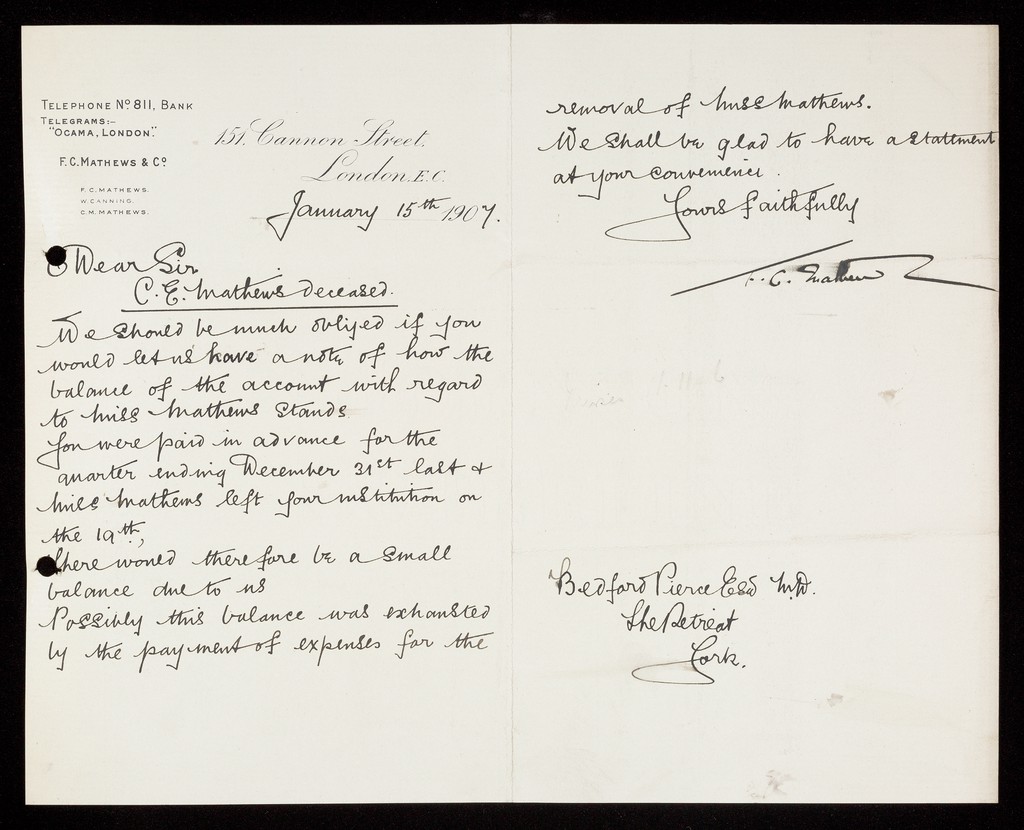 TELEPHONE No. 811, BANK
TELEGRAMS:-
"OCAMA, LONDON."
F.C. MATHEWS & Co.
F.C. MATHEWS.
W. CANNING.
C.M. MATHEWS.
151, Cannon Street,
London, E.C.
January 15th 1907.
Dear Sir
C. E. Mathews deceased.
We should be much obliged if you
would let us have a note of how the
balance of the account with regard
to Miss Mathews stands
You were paid in advance for the
quarter ending December 31st last &
Miss Mathews left your institution on
the 19th,
There would therefore be a small
balance due to us
Possibly this balance was exhausted
by the payment of expenses for the
removal of Miss Mathews.
We shall be glad to have a statement
at your convenience.
Yours faithfully
F. C. Mathews
Bedford Pierce Esq M.D.
The Retreat
York.